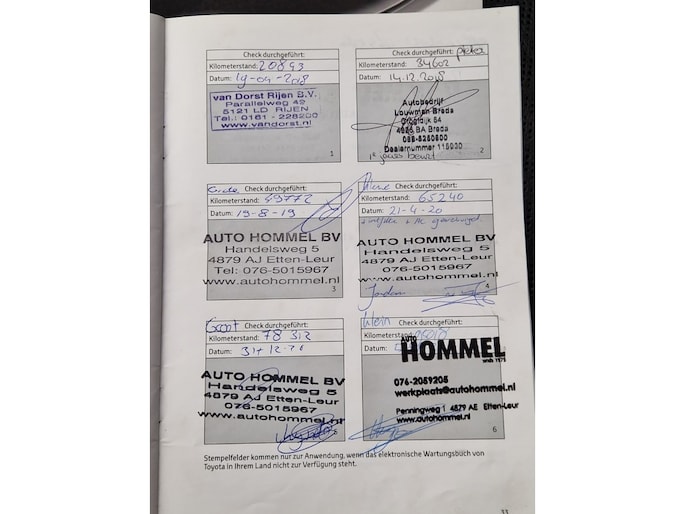 Check durchgeführt:
Kilometerstand: 20893
Datum: 19-04-2018
van Dorst Rijen B.V.
Parallelweg 49
5121 LD RIJEN
Tel.: 0161 - 228200
www.vandorst.nl
1
Check durchgeführt:
Kilometerstand: 34602
Datum: 14.12.2018
Autobedrijf
Louwman Breda
Groetdijk 54
BA Breda
Dealernummer
1e jaars beurt
2
Grote Check durchgeführt:
Kilometerstand: 49772
Datum: 19-8-19
AUTO HOMMEL BV
Handelsweg 5
4879 AJ Etten-Leur
Tel: 076-5015967
www.autohommel.nl
3
Check durchgeführt:
Kilometerstand: 65240
Datum: 21-4-20
AUTO HOMMEL BV
Handelsweg 5
4879 AJ Etten-Leur
076-5015967
www.autohommel.nl
4
Groot Check durchgeführt:
Kilometerstand: 78 312
Datum:
AUTO HOMMEL BV
Handelsweg 5
4879 AJ Etten-Leur
076-5015967
www.autohommel.nl
5
Klein Check durchgeführt:
Kilometerstand:
Datum:
AUTO
HOMMEL
sinds 1975
076-2059205
werkplaats@autohommel.nl
Penningweg 1 4879 AE Etten-Leur
www.autohommel.nl
6
Stempelfelder kommen nur zur Anwendung, wenn das elektronische Wartungsbuch von
Toyota in Ihrem Land nicht zur Verfügung steht.
33